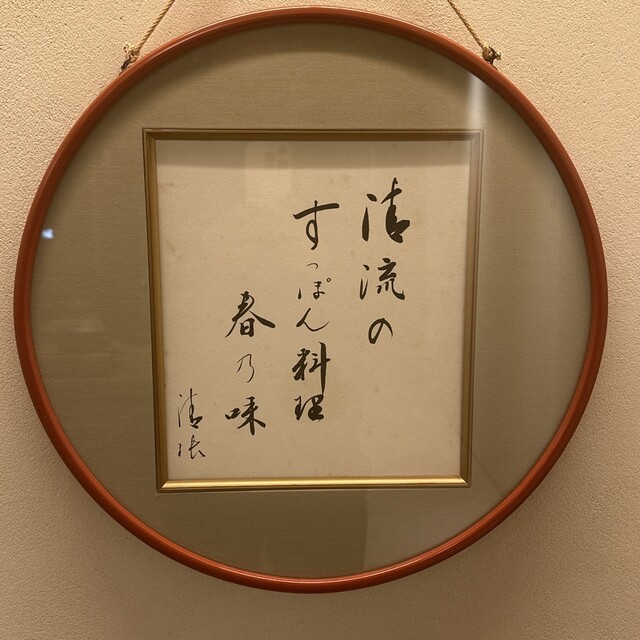 清流の
すっぽん料理
春乃味
清張